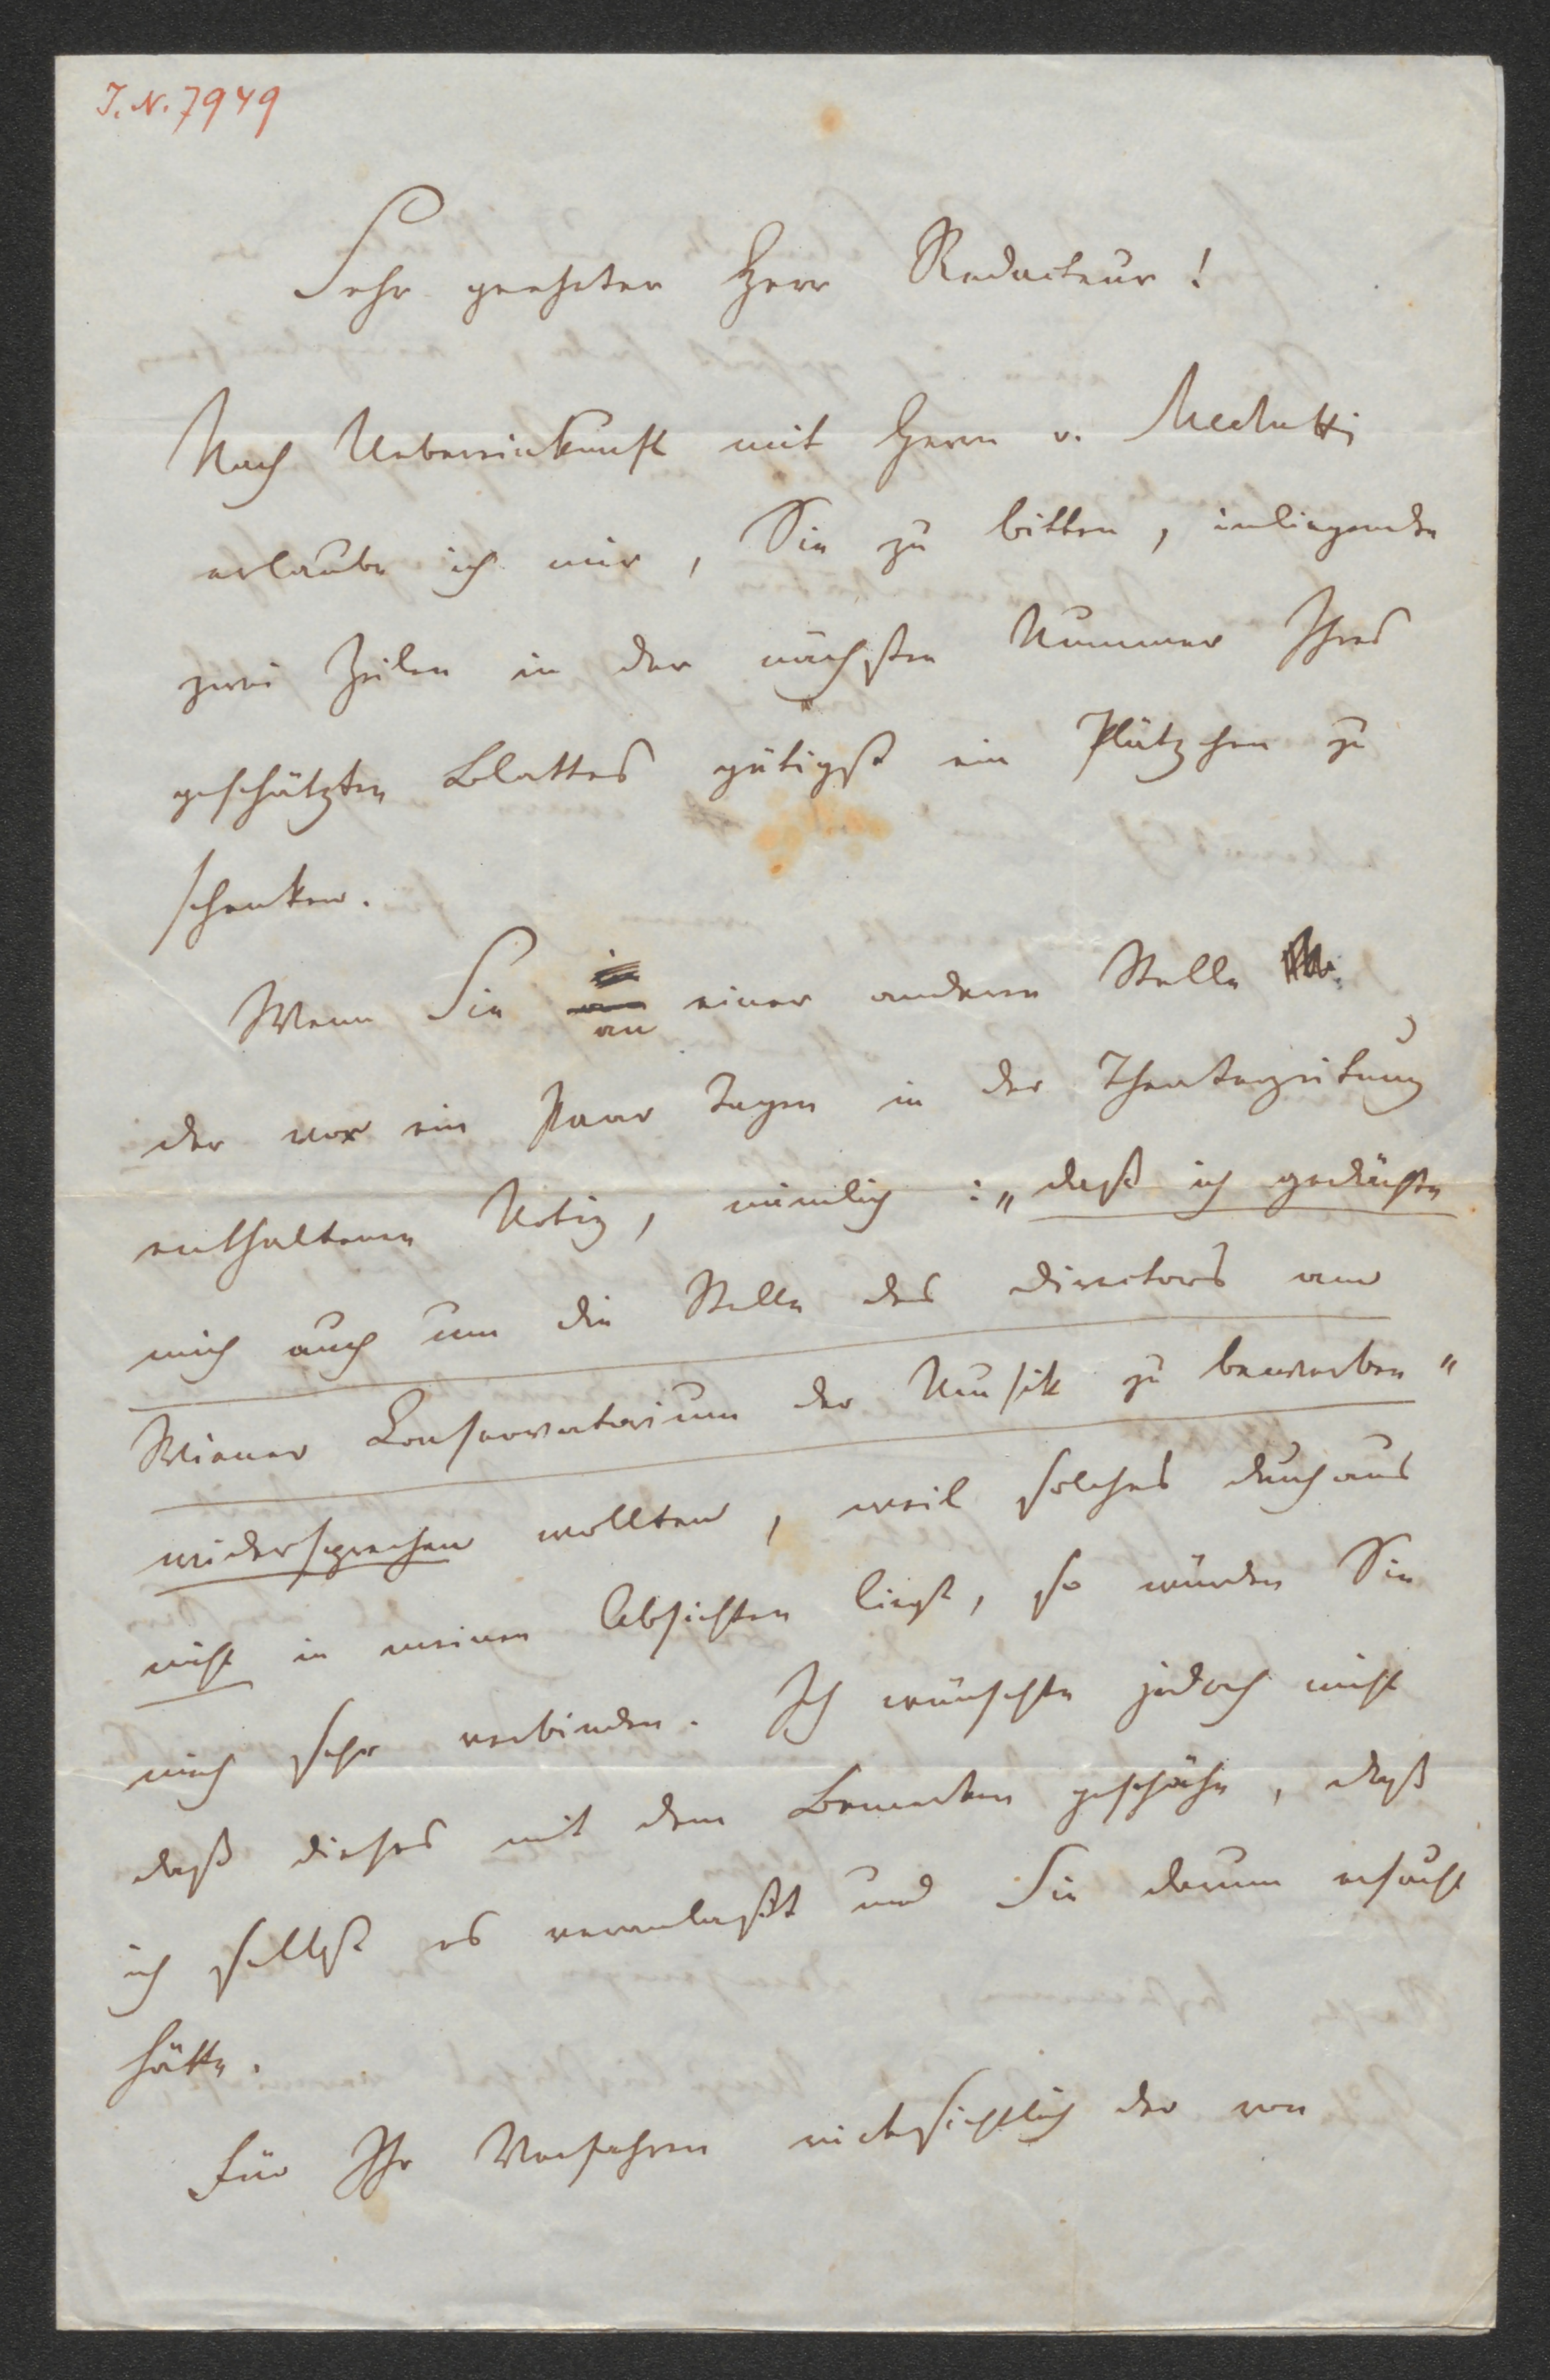 J. N. 7949
Sehr geehrter Herr Redacteur!
Nach Uebereinkunft mit Herrn v. Mechetti
erlaube ich mir, Sie zu bitten, inliegende
zwei Zeilen in der nächsten Nummer Ihres
geschätzten Blattes gütigst ein Plätzchen zu
schenken.
Wenn Sie an einer anderen Stelle
der vor ein Paar Tagen in der Theaterzeitung
enthaltenen Notiz, nämlich: „daß ich gedächte
mich auch um die Stelle des Directors am
Wiener Conservatorium der Musik zu bewerben"
widersprechen wollten, weil solches durchaus
nicht in meinen Absichten liegt, so würden Sie
mich sehr verbinden. Ich wünschte jedoch nicht
daß dieses mit dem Bemerken geschähe, daß
ich selbst es veranlaßt und Sie darum ersucht
hätte.
Für Ihr Verfahren rücksichtlich der von